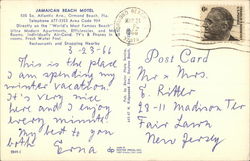 JAMAICAN BEACH MOTEL
530 So. Atlantic Ave., Ormond Beach, Fla.
Telephone 677-3353 Area Code 904
Directly on the "World's Most Famous Beach"
Ultra Modern Apartments, Efficiencies, and Motel
Rooms. Individually Air-Cond. TV's & Phones in
rooms. Fresh Water Pool.
Restaurants and Shopping Nearby
3-23-66
This is the place
I am spending my
winter vacation.
It is very nice
here and I enjoy
every minute.
My best to you
both.
Erna
Post Card
Mr & Mrs.
E. Ritter
28-11 Madison Ter
Fair Lawn
New Jersey